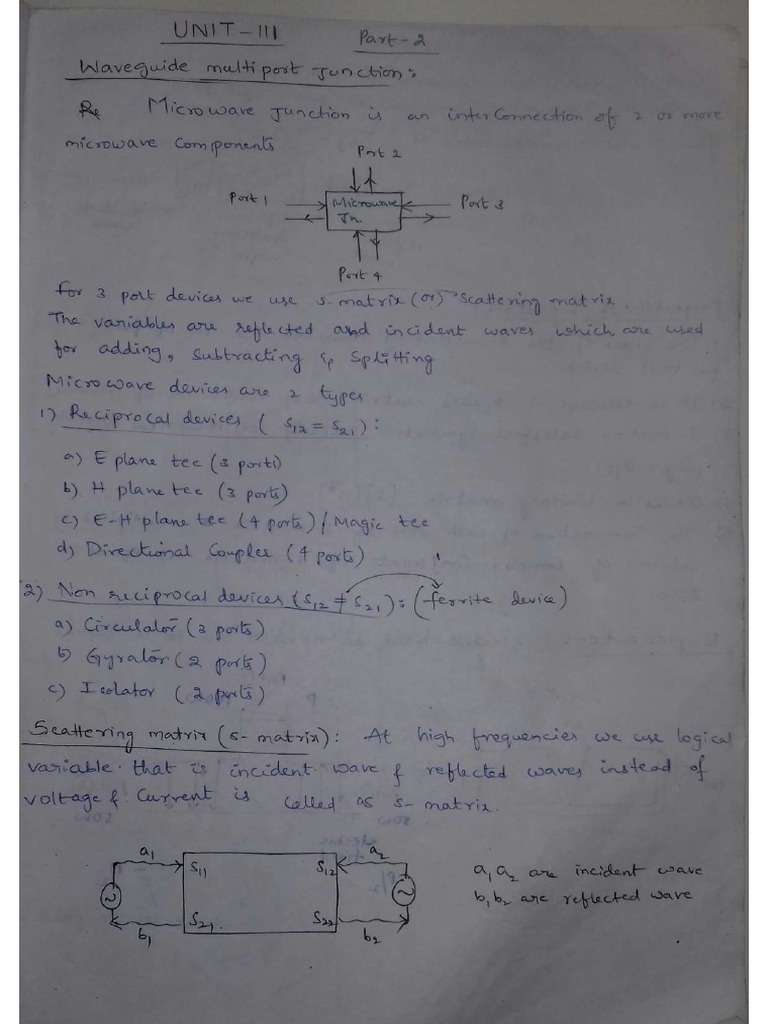 UNIT-III Part-2
Waveguide multiport Junction:
Re Microwave Junction is an inter Connection of 2 or more
microwave Components
Port 2
Port 1 Microwave Port 3
Jn.
Port 4
For 3 port devices we use s-matrix (or) scattering matrix.
The variables are reflected and incident waves which are used
for adding, subtracting & splitting
Microwave devices are 2 types
1) Reciprocal devices ( S12 = S21 ) :
a) E plane tee (3 ports)
b) H plane tee (3 ports)
c) E-H plane tee (4 ports) / Magic tee
d) Directional Coupler (4 ports)
2) Non reciprocal devices (S12 ≠ S21) : (ferrite device)
a) Circulator (3 ports)
b) Gyrator (2 ports)
c) Isolator (2 ports)
Scattering matrix (s-matrix) : At high frequencies we use logical
variable. that is incident. wave & reflected waves instead of
voltage & Current is called as s-matrix.
a1 a2
S11 S12 a1 a2 are incident wave
b1 b2 are reflected wave
S21. S22
b1 b2